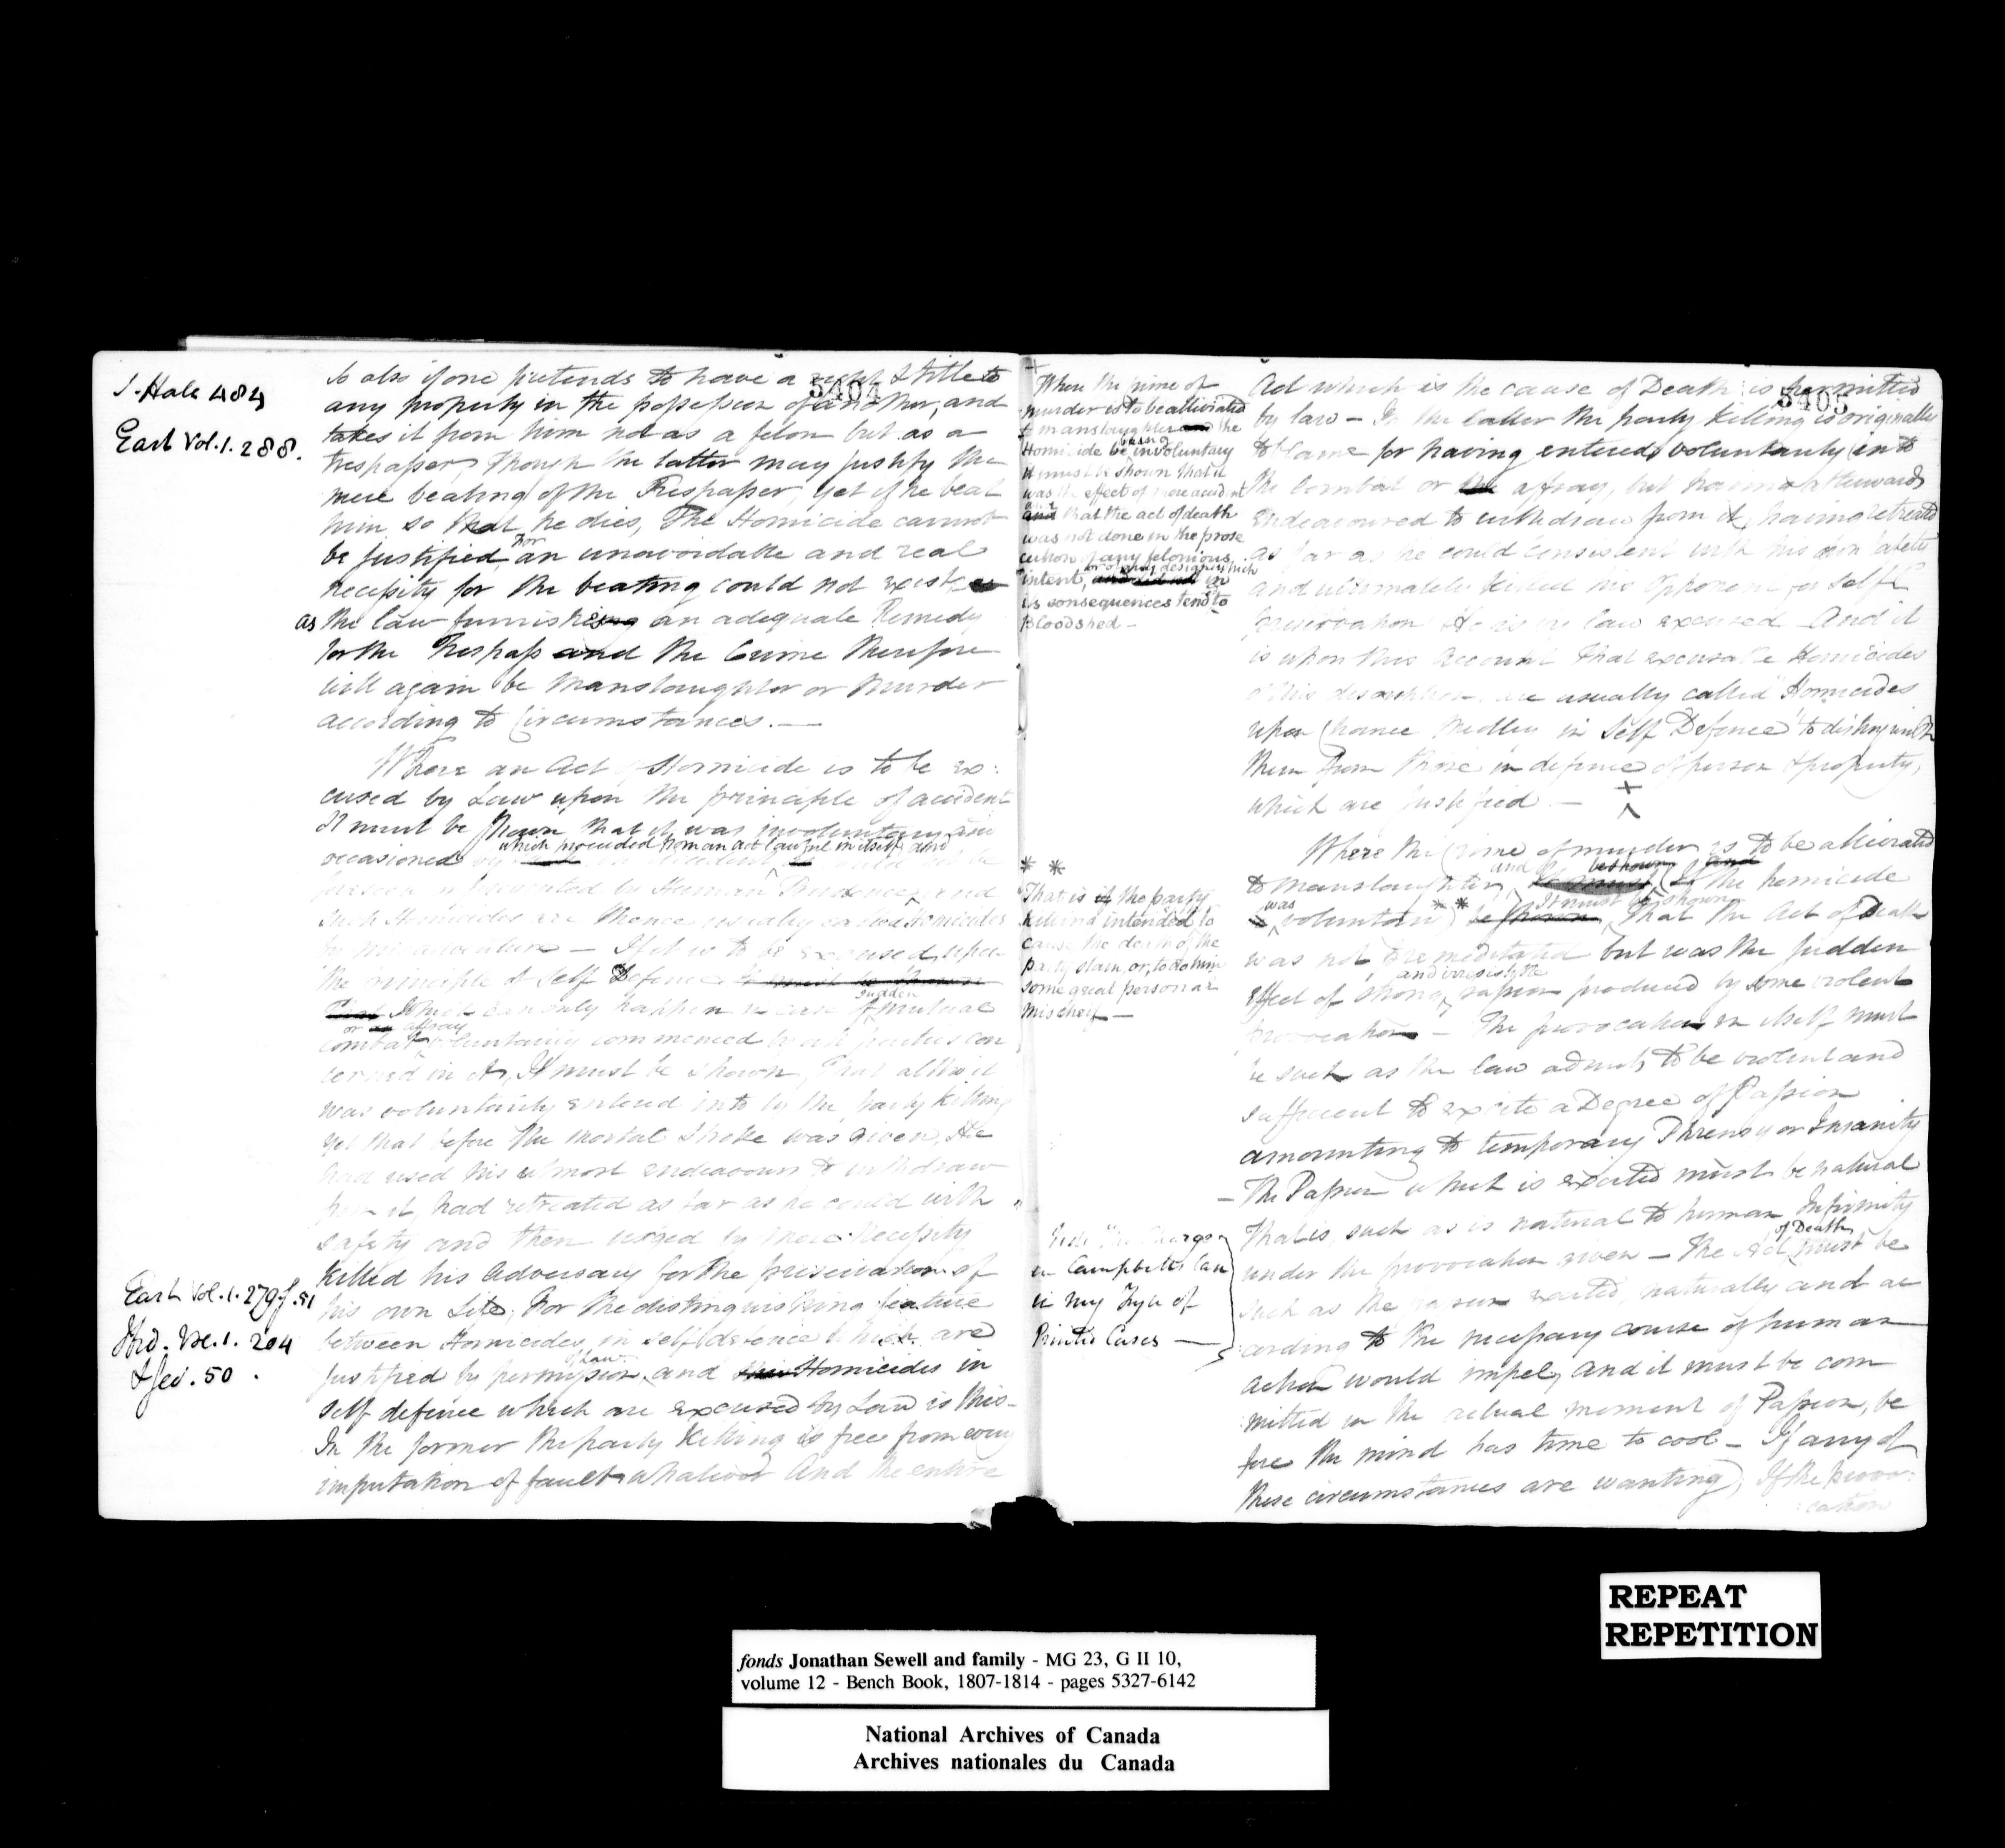 1. Hale 484
East Vol. 1. 288.
5404
So also if one pretends to have a right & title to
any property in the possession of another, and
takes it from him not as a felon but as a
trespasser, though the latter may justify the
mere beating of the Trespasser yet if he beat
him so that he dies, The Homicide cannot
be justified for an unavoidable and real
necessity for the beating could not exist
as the law furnishing an adequate Remedy
for the Trespass and the Crime therefore
will again be Manslaughter or Murder
according to Circumstances. —
Where an Act of Homicide is to be ex:
cused by Law upon the principle of accident
It must be shewn that it was involuntary and
which proceeded from an act lawful in itself and
occasioned by
foreseen or prevented by Human Prudence and
such Homicides are thence usually called Homicides
by misadventure — If it is to be excused upon
the principle of Self Defence it must be shewn
sudden
that which can only happen in case of mutual
or an affray
combat voluntarily commenced by all parties con
cerned in it, It must be shown, That altho it
was voluntarily entered into by the party killing
yet that before the mortal stroke was given, He
had used his utmost endeavours to withdraw
from it, had retreated as far as he could with
safety and then urged by mere Necessity
killed his Adversary for the preservation of
his own Life, For the distinguishing feature
between Homicides in self defence which are
of Law
justified by permission and Homicides in
self defence which are excused by Law is this —
In the former the party Killing is free from every
imputation of fault whatever And the entire
East Vol. 1. 279. f. 51
Ibid. Vol. 1. 204
& Sed. 50.
+
When the crime of
murder is to be alliviated
to manslaughter and the
being
Homicide be involuntary
it must be shown that it
was the effect of mere accident
and that the act of death
was not done in the prose
cution of any felonious
or of any design which
intent, in
its consequences tend to
Bloodshed —
* *
That is if the party
killing intended to
cause the death of the
party slain, or, to do him
some great personal
mischief —
Vide The Charge
in Campbells Case
in my Fyle of
Printed Cases —
5405
Act which is the cause of Death is permitted
by law — In the latter the party killing is originally
to blame for having entered voluntarily into
the Combat or the affray, but having afterwards
endeavoured to withdraw from it, having retreated
as far as he could consistent with his own safety
and ultimately killed his Opponent for self
preservation He is in law excused And it
is upon this account that excusable Homicides
of this description are usually called "Homicides
upon Chance Medley in Self Defence" to distinguish
them from those in defence of person & property,
which are justified. — +
Where the Crime of murder is to be alliviated
and be shown and
to manslaughter, it must, If the homicide
was It must be shown
is voluntary * * be shown, That the Act of Death
was not premeditated but was the sudden
and irresistible
effect of strong passion produced by some violent
provocation — The provocation in itself must
be such as the law admits to be violent and
sufficient to excite a Degree of Passion
amounting to temporary Phrensy or Insanity
— The Passion which is excited must be natural
That is such as is natural to human Infirmity
of Death
under the provocation given — The Act must be
such as the passion excited, naturally and ac
cording to the necessary course of human
action would impel, and it must be com
mitted in the actual moment of Passion, be
fore the mind has time to cool — If any of
these circumstances are wanting, If the provo:
cation
REPEAT
REPETITION
fonds Jonathan Sewell and family - MG 23, G II 10,
volume 12 - Bench Book, 1807-1814 - pages 5327-6142
National Archives of Canada
Archives nationales du Canada